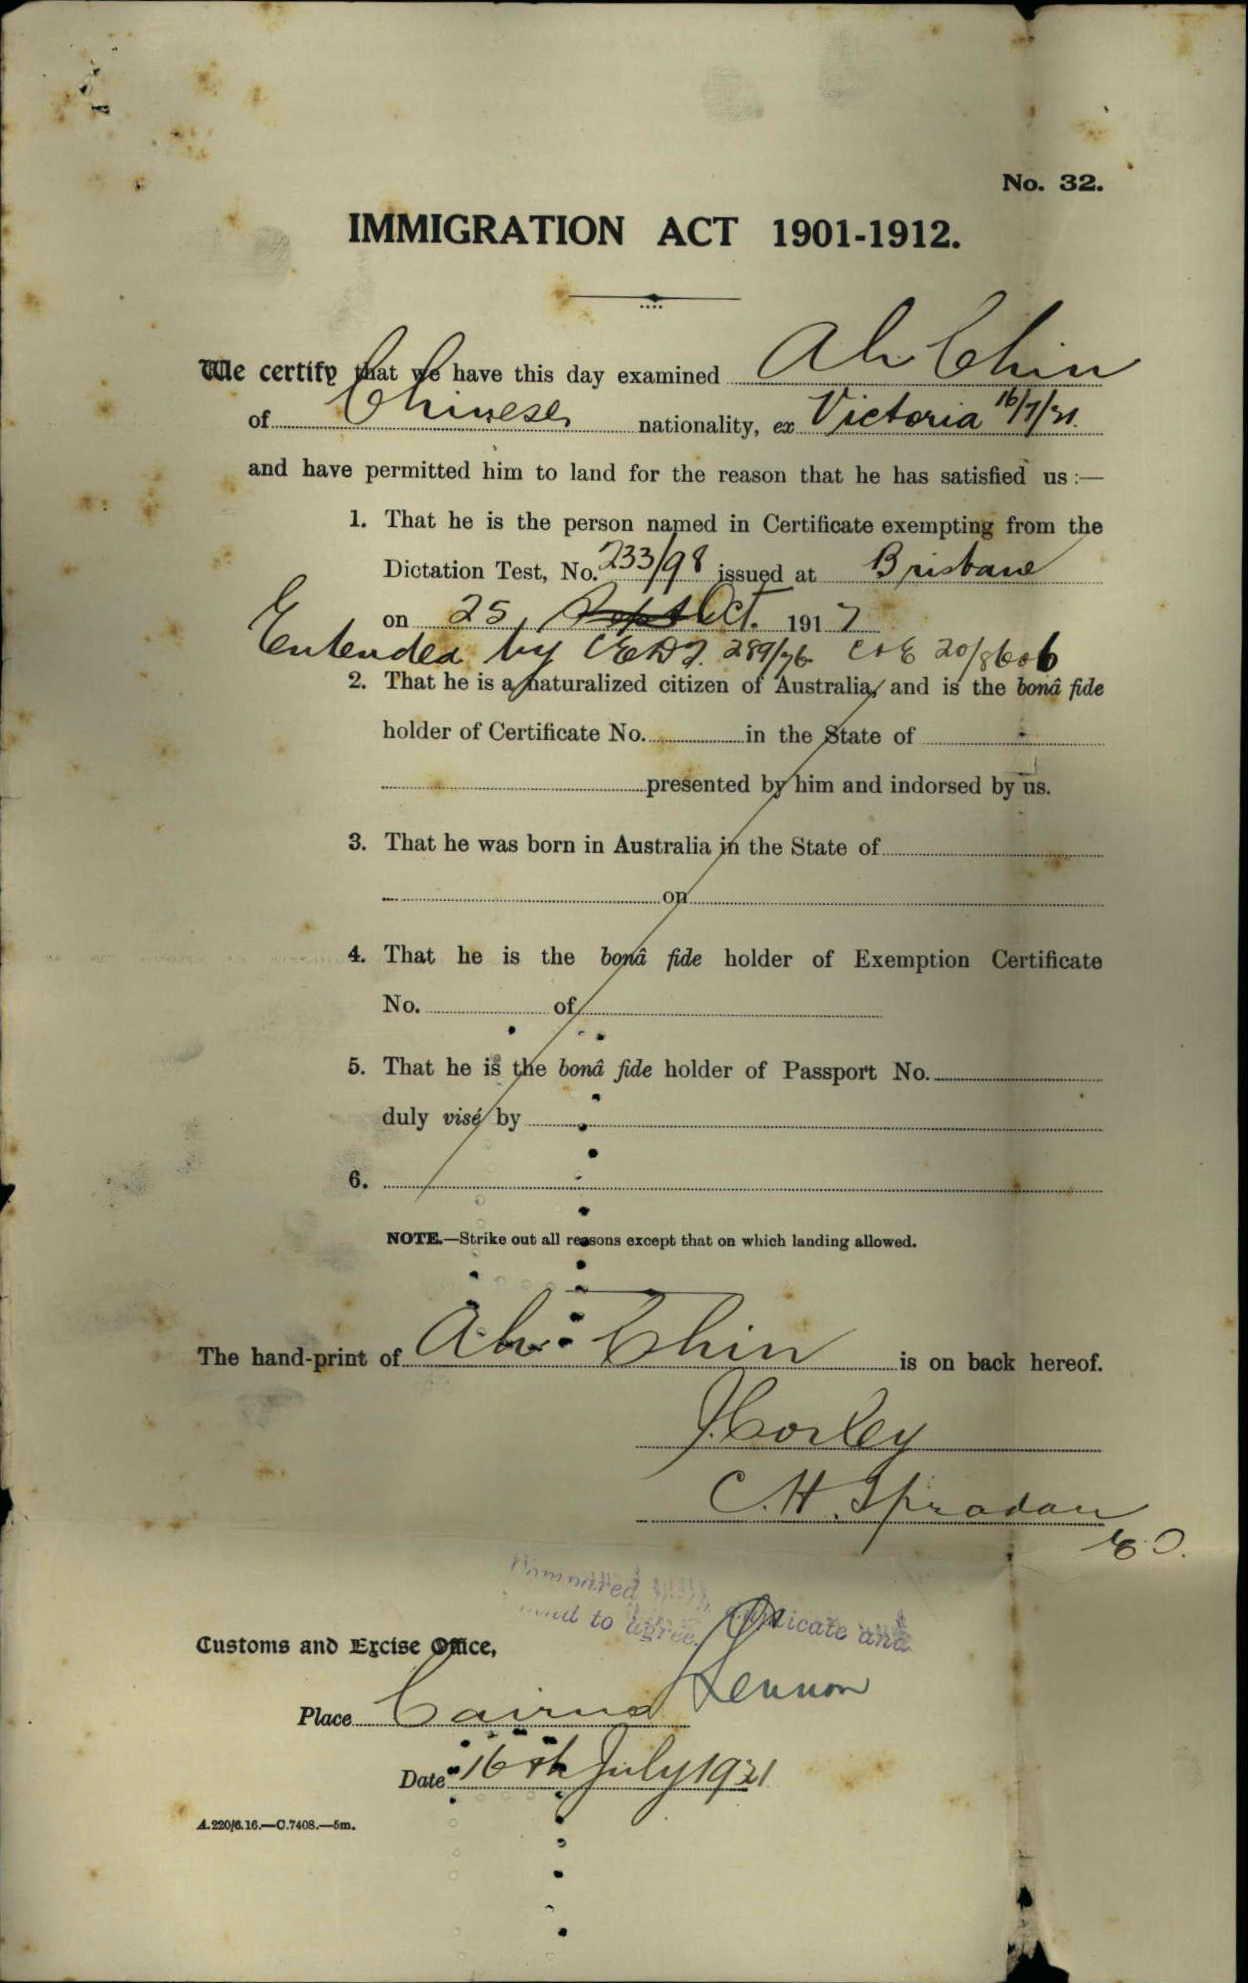 No. 32.
IMMIGRATION ACT 1901-1912.
We certify that we have this day examined Ah Chin
of Chinese nationality, ex Victoria 16/7/21.
and have permitted him to land for the reason that he has satisfied us :—
1. That he is the person named in Certificate exempting from the
Dictation Test, No. 233/98 issued at Brisbane
on 25 Sept Oct. 1917
Extended by CEDT. 289/76 C & E 20/8606
2. That he is a naturalized citizen of Australia, and is the bonâ fide
holder of Certificate No. in the State of
presented by him and indorsed by us.
3. That he was born in Australia in the State of
on
4. That he is the bonâ fide holder of Exemption Certificate
No. of
5. That he is the bonâ fide holder of Passport No.
duly visé by
6.
NOTE.—Strike out all reasons except that on which landing allowed.
The hand-print of Ah Chin is on back hereof.
J. Corley
C. H.
Compared with duplicate and
found to agree.
Lennon
Customs and Excise Office,
Place Cairns
Date 16th July 1921
A.220/6.16.—C.7408.—5m.